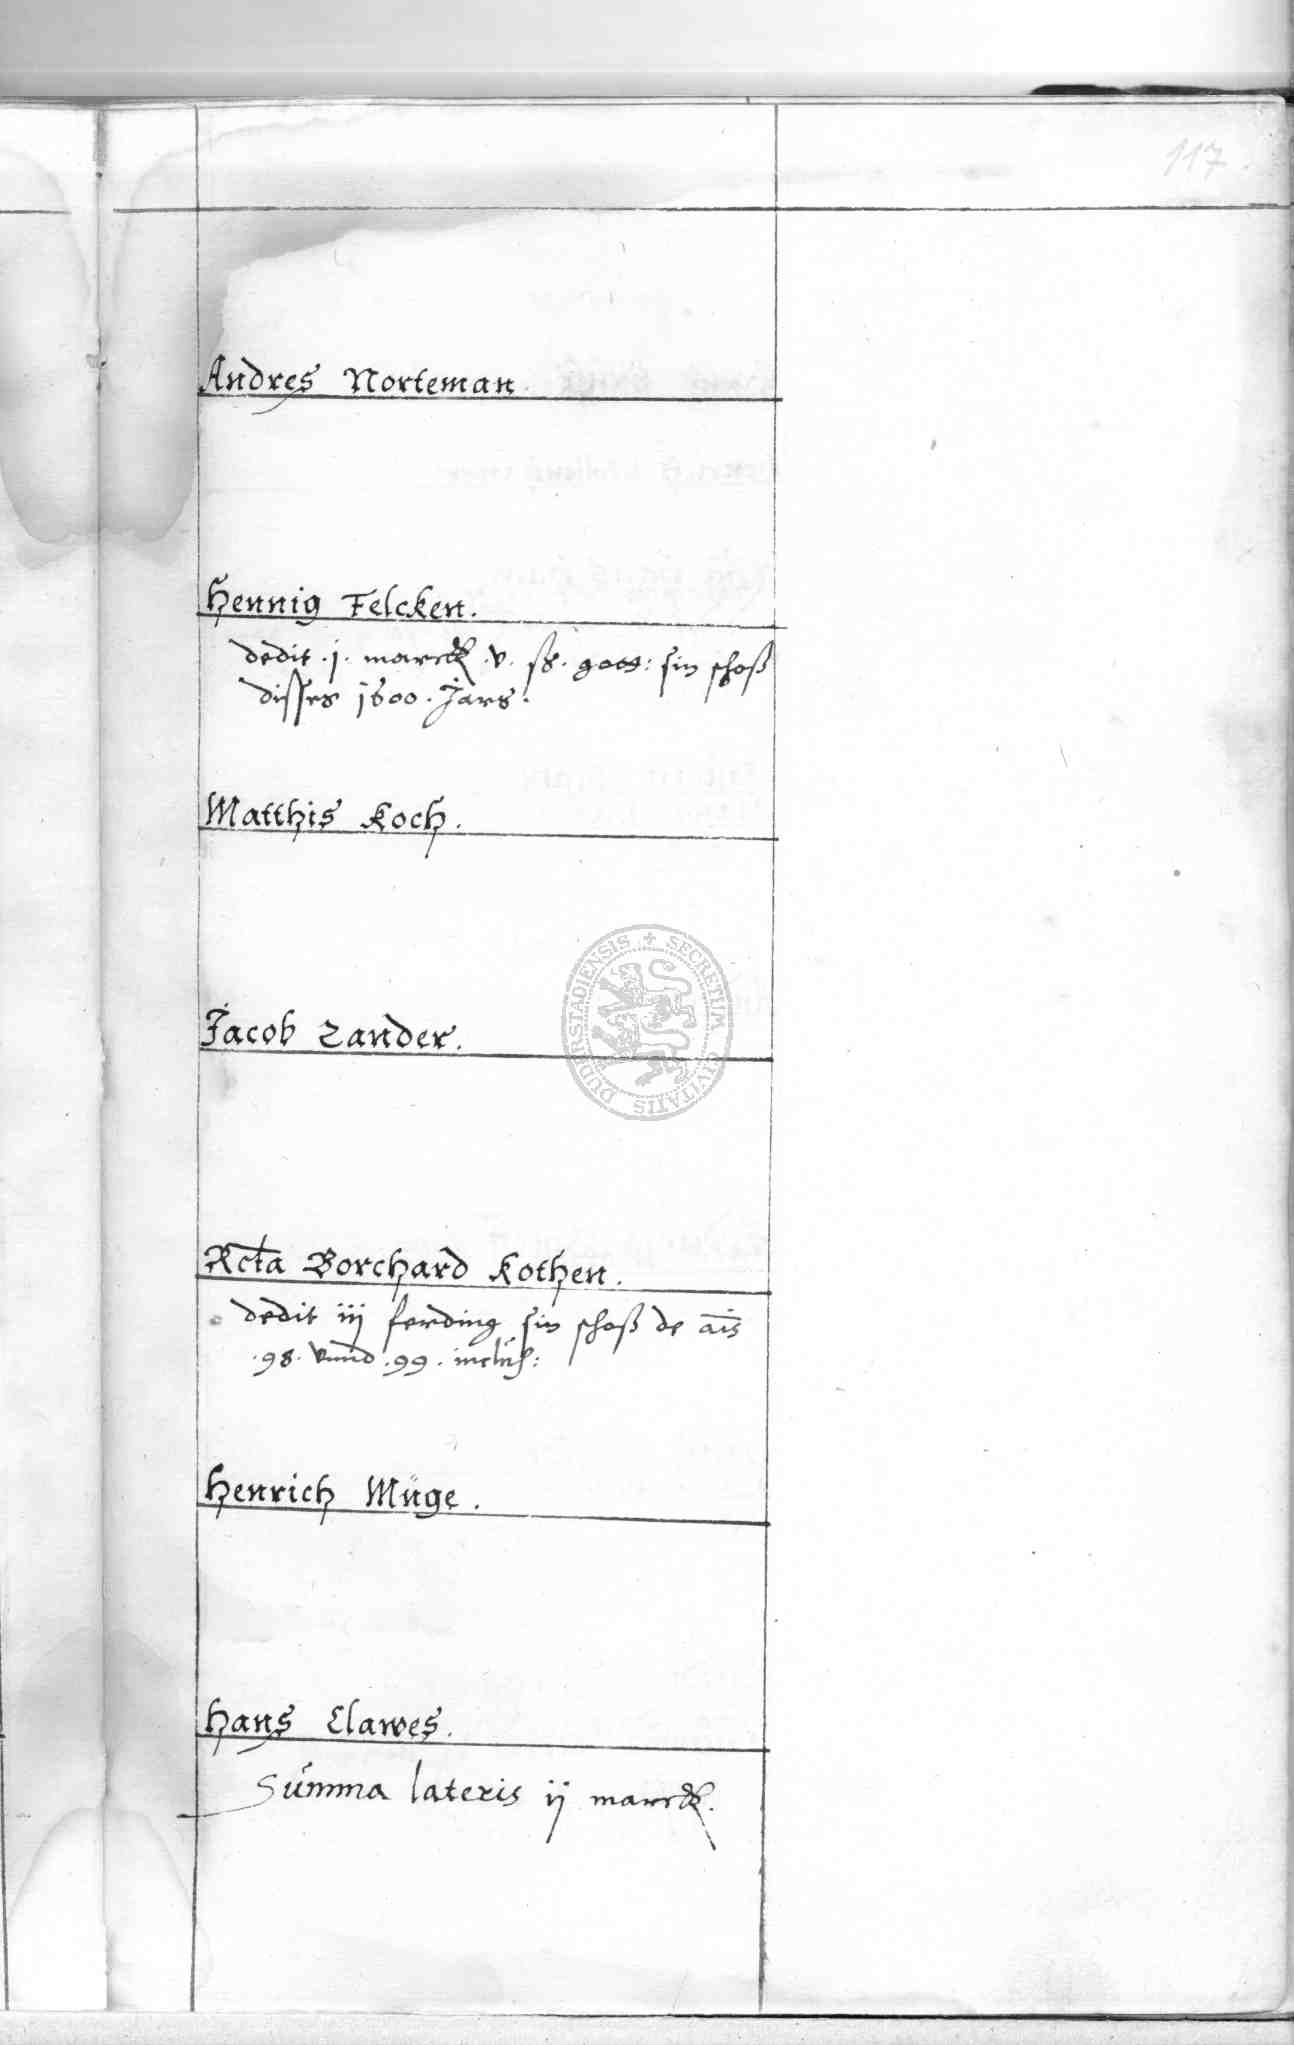 117
Andres Norteman
Hennig Felcken.
dedit . j . marck . v . ß . gott: sin schoß
disses 1600 . Jars .
Matthis Koch .
Jacob Zander .
SECRETUM CIVITATIS DUDERSTADIENSIS
Rcta Borchard Kothen .
dedit iij ferding sin schoß de ais
. 98 . vnnd . 99 . inclus:
Henrich Müge .
Hans Clawes .
Summa lateris ij marck .